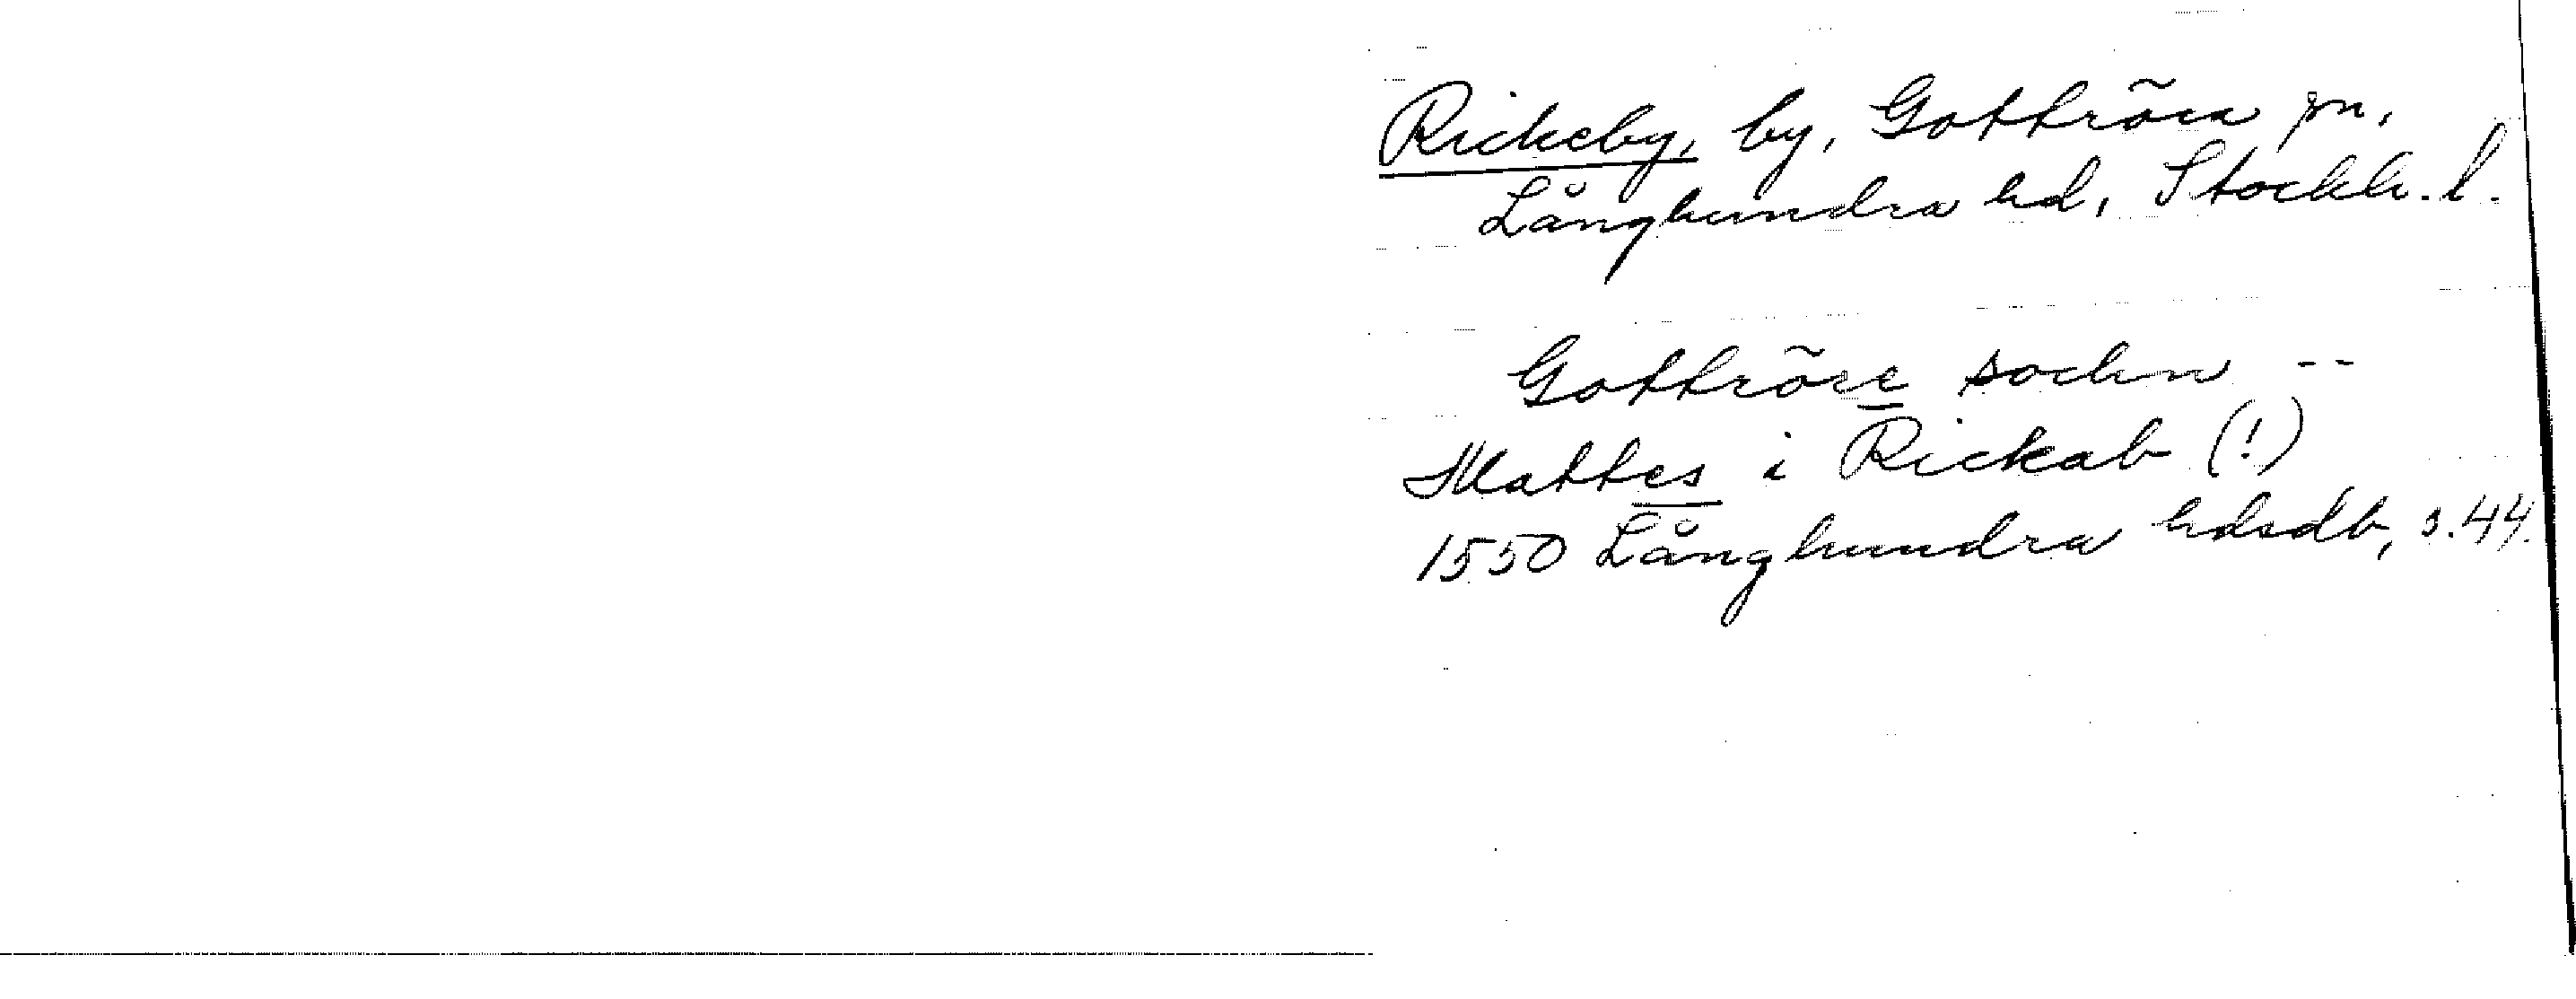 Rickeby, by, Gottröra sn,
Långhundra hd, Stockh. l.
Gottröre sochn --
Mattes i Rickab (!)
1550 Långhundra hdsdb, s. 44.